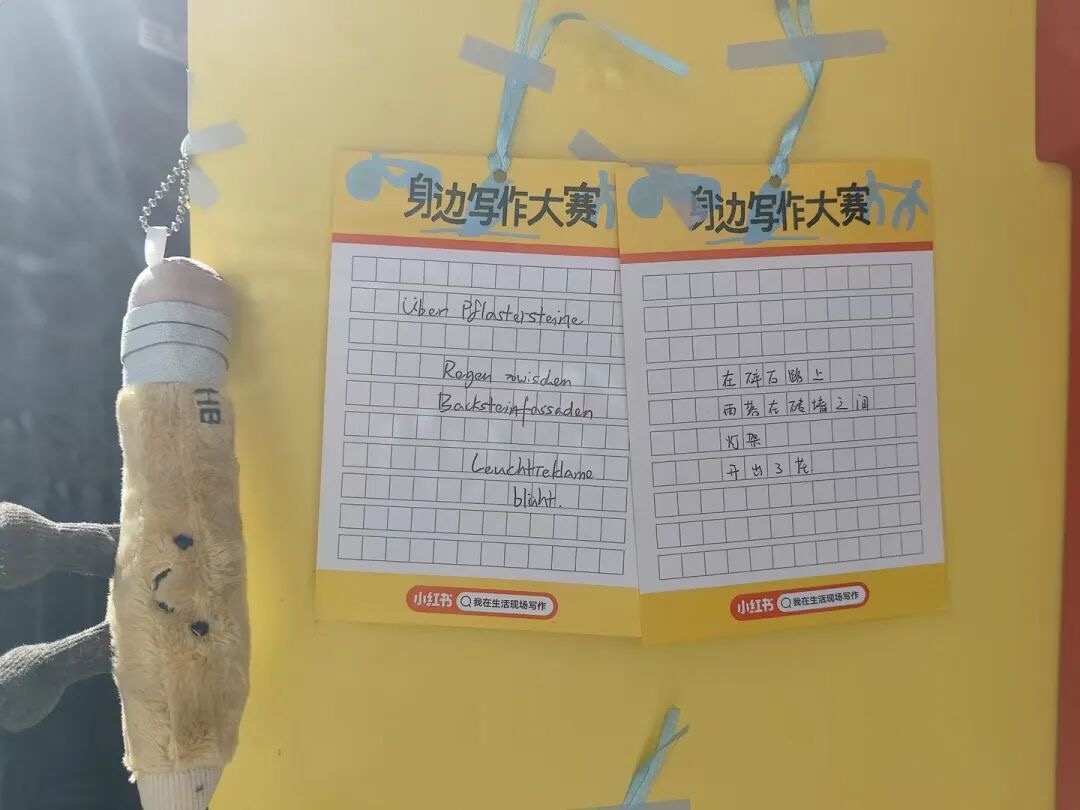 身边写作大赛
Über Pflastersteine
Regen zwischen
Backsteinfassaden
Leuchtreklame
blüht.
小红书 我在生活现场写作
身边写作大赛
在碎石路上
雨落在砖墙之间
灯架
开出了花
小红书 我在生活现场写作
HB